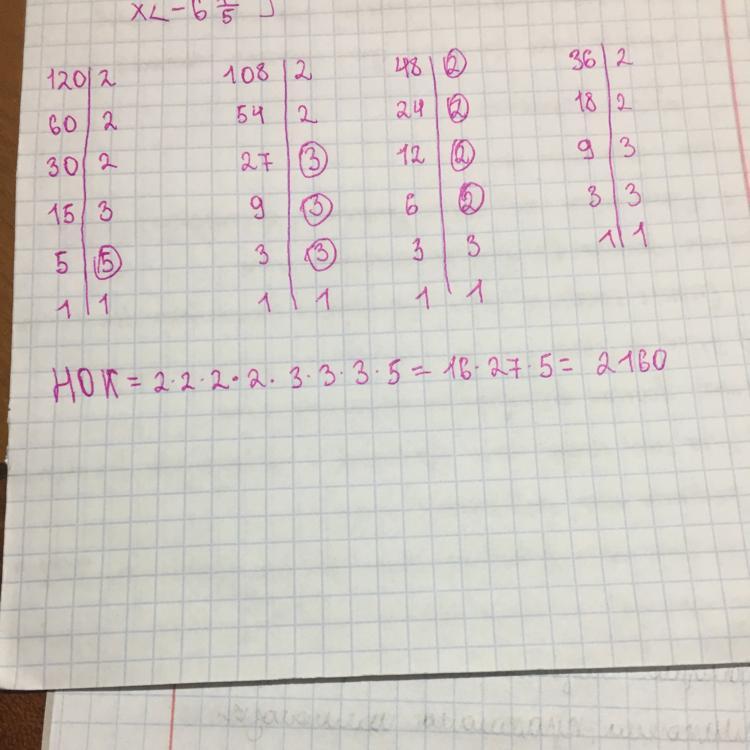 x < -6 1/5 ]
120 | 2 108 | 2 48 | 2 36 | 2
60 | 2 54 | 2 24 | 2 18 | 2
30 | 2 27 | 3 12 | 2 9 | 3
15 | 3 9 | 3 6 | 2 3 | 3
5 | 5 3 | 3 3 | 3 1 | 1
1 | 1 1 | 1 1 | 1
НОК = 2·2·2·2·3·3·3·5 = 16·27·5 = 2160